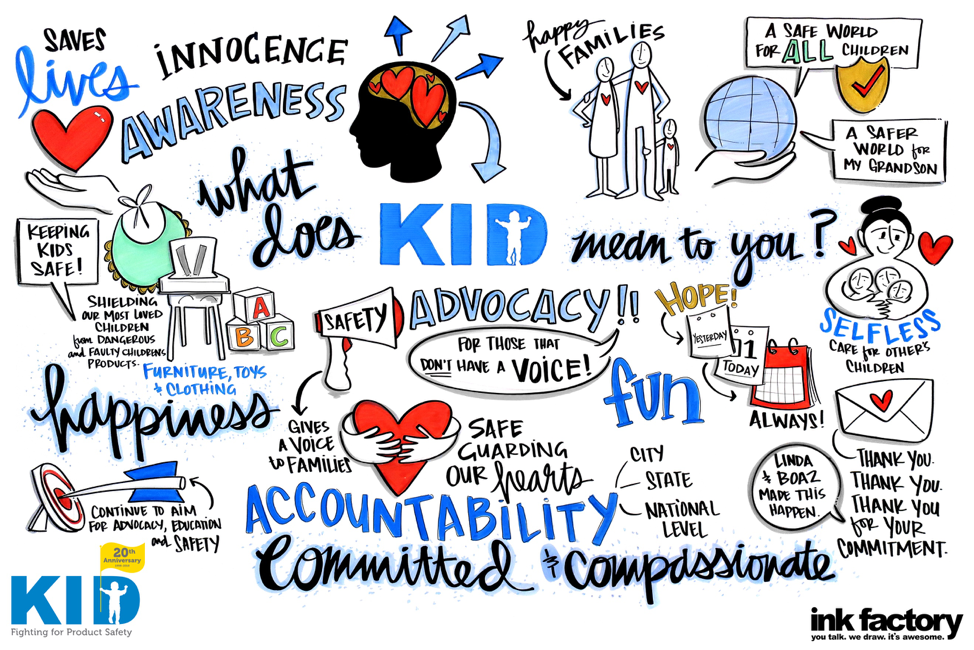 SAVES
lives
INNOCENCE
AWARENESS
happy
FAMILIES
A SAFE WORLD
FOR ALL CHILDREN
A SAFER
WORLD for
MY GRANDSON
what
does
KID
mean to you?
KEEPING
KIDS
SAFE!
SHIELDING
OUR MOST LOVED
CHILDREN
from DANGEROUS
and FAULTY CHILDRENS
PRODUCTS.
A
B C
FURNITURE, TOYS
& CLOTHING
happiness
SAFETY
ADVOCACY!!
FOR THOSE THAT
DON'T HAVE A VOICE!
HOPE!
YESTERDAY
1
TODAY
ALWAYS!
SELFLESS
CARE for OTHER'S
CHILDREN
fun
GIVES
A VOICE
to FAMILIES
SAFE
GUARDING
OUR hearts
ACCOUNTABILITY
CITY
STATE
NATIONAL
LEVEL
LINDA
& BOAZ
MADE THIS
HAPPEN.
THANK YOU.
THANK YOU.
THANK YOU
for YOUR
COMMITMENT.
CONTINUE TO AIM
FOR ADVOCACY, EDUCATION
and SAFETY
Committed & Compassionate
20th
Anniversary
KID
Fighting for Product Safety
ink factory
you talk. we draw. it's awesome.